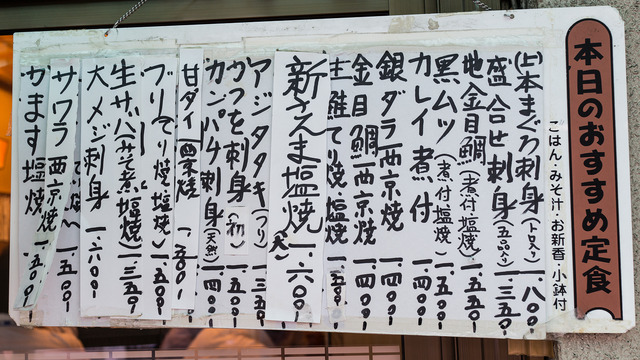 本日のおすすめ定食
ごはん・みそ汁・お新香・小鉢付
(上)本まぐろ刺身(トロ入り)一、八〇〇
盛合せ刺身(五品入り)一、三五〇
地金目鯛(煮付塩焼)一、五五〇
黒ムツ(煮付塩焼)一、五〇〇
カレイ煮付一、四〇〇
銀ダラ西京焼一、四〇〇
金目鯛西京焼一、四〇〇
生鮭てり焼塩焼一、一五〇
新さんま塩焼(大)一、六〇〇
アジタタキ(フリ)一、三五〇
カツを刺身(初)一、五〇〇
カンパチ刺身(天然)一、四〇〇
甘ダイ西京焼一、五〇〇
ブリてり焼塩焼一、五〇〇
生サバみそ煮塩焼一、三五〇
大メジ刺身一、六〇〇
てり焼
サワラ西京焼一、五〇〇
カます塩焼一、五〇〇